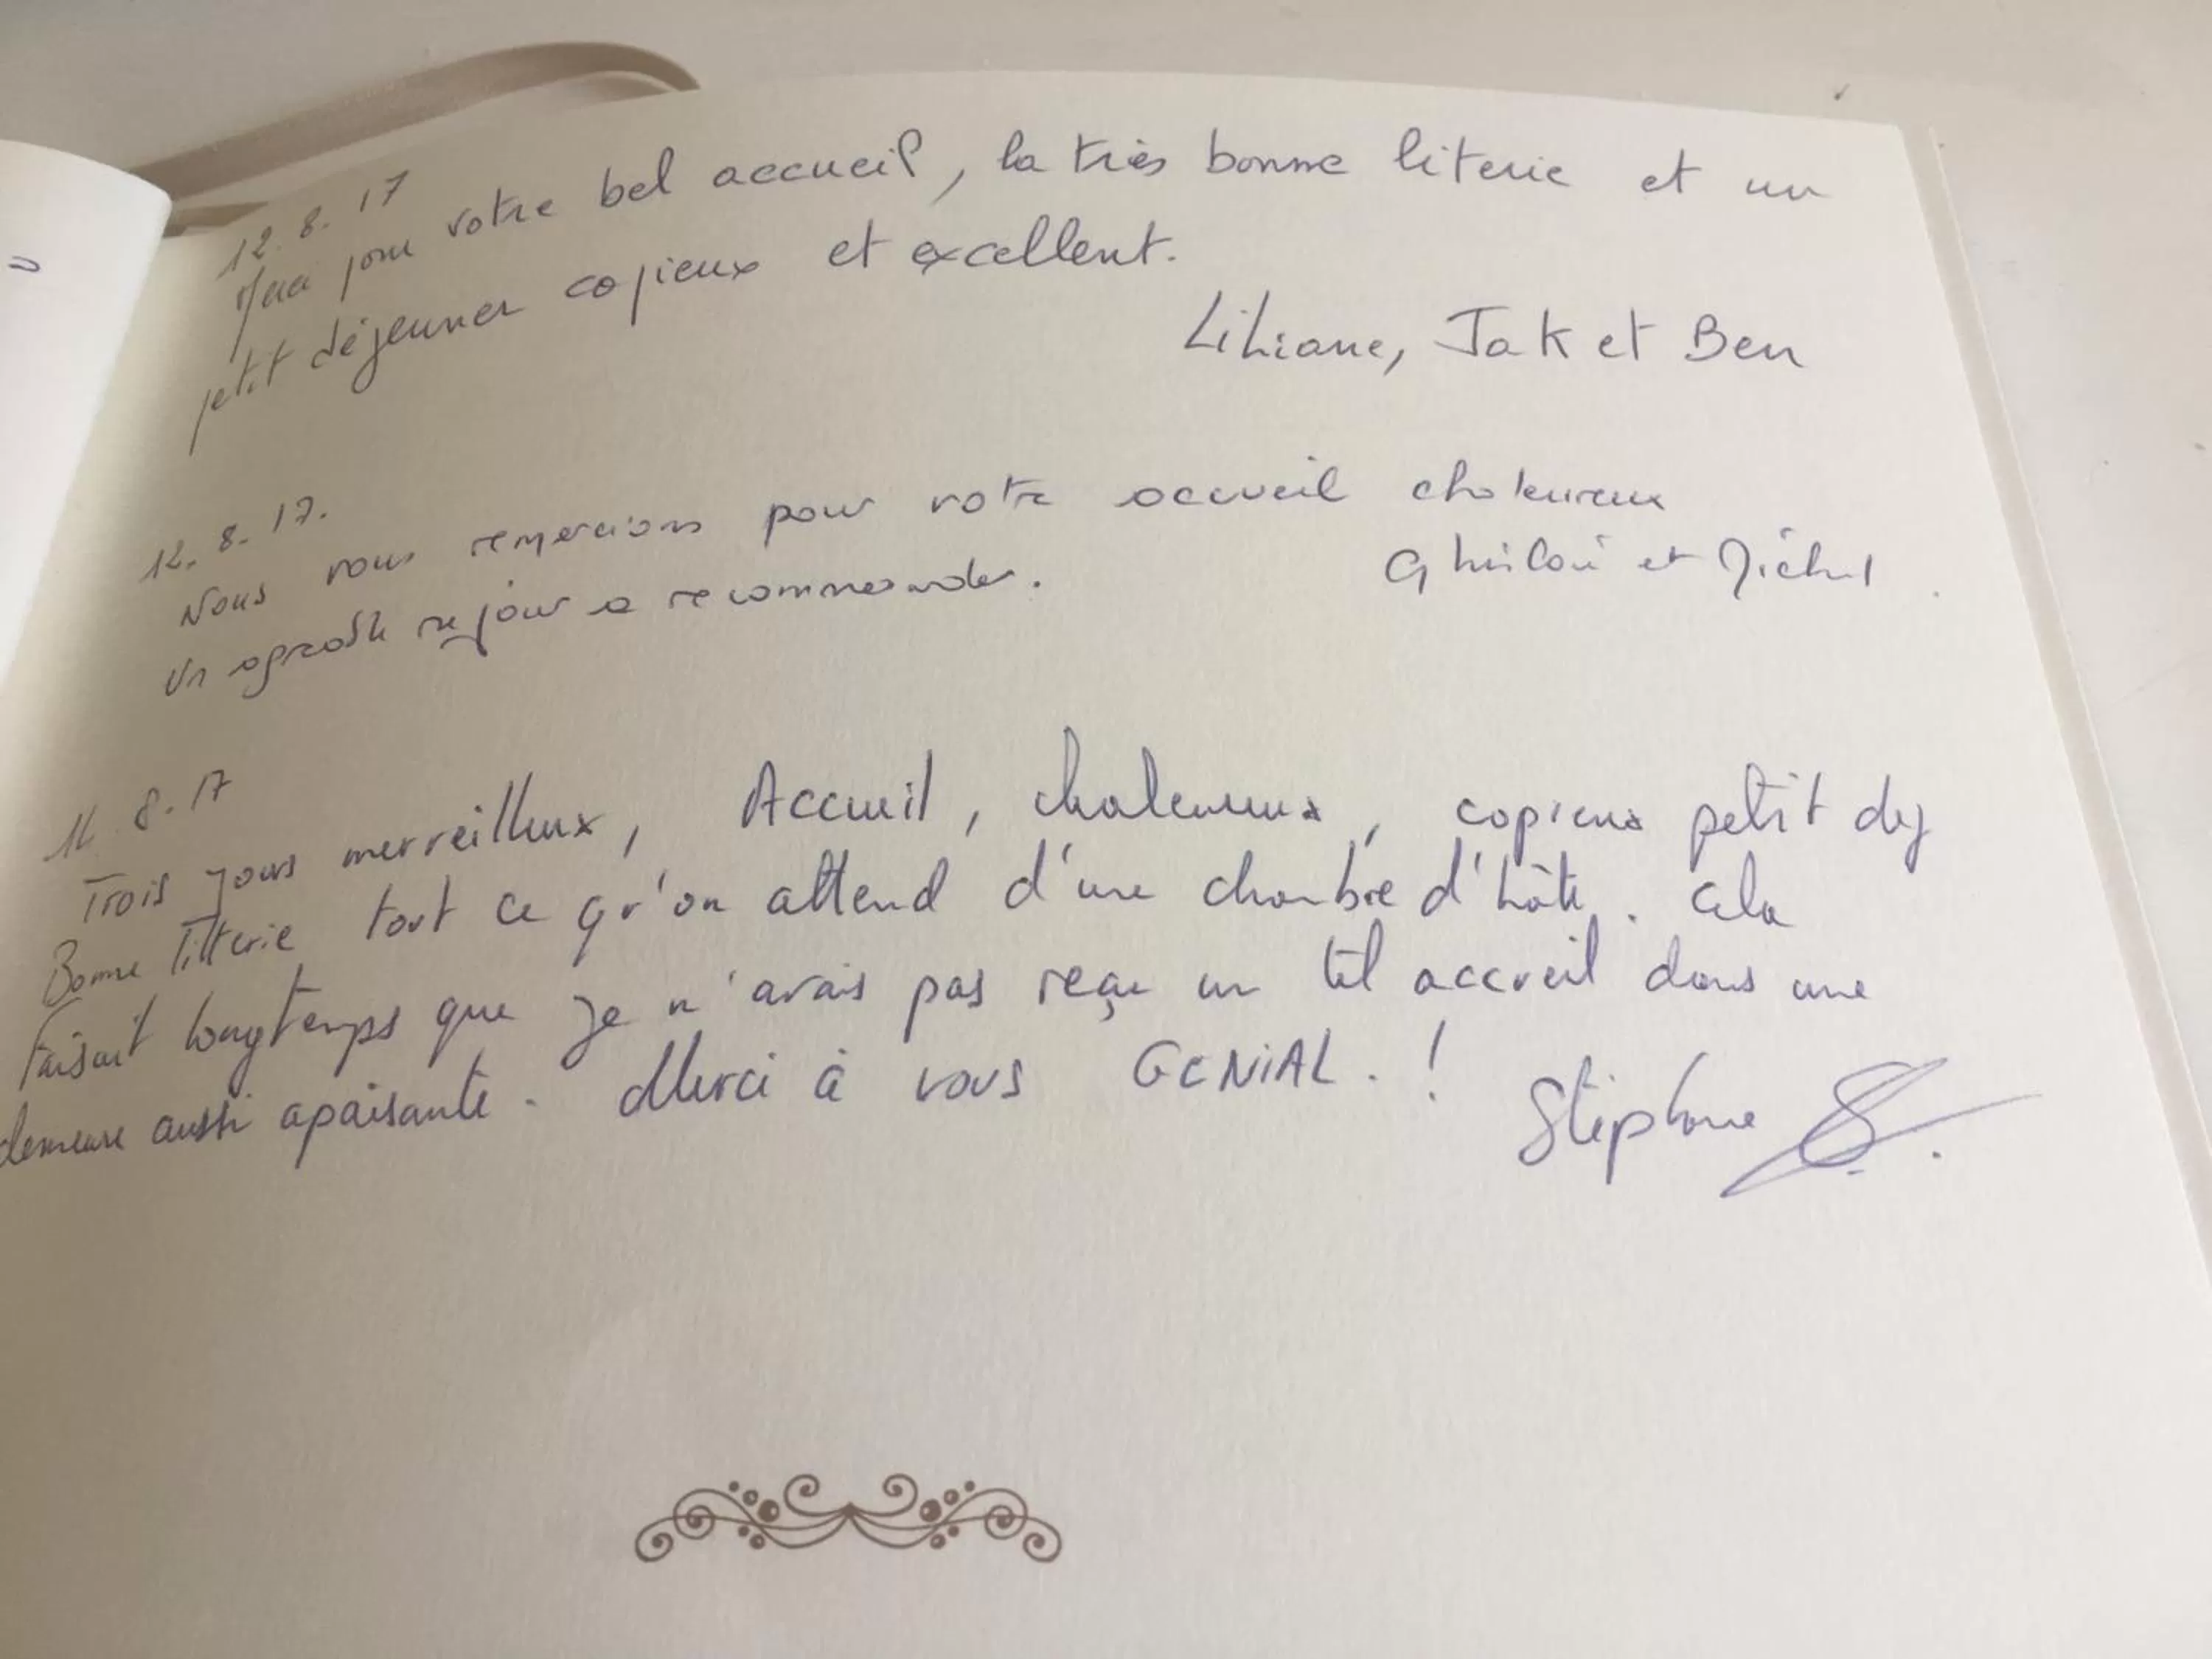 12.8.17
Merci pour votre bel accueil, la très bonne literie et un
petit déjeuner copieux et excellent.
Liliane, Jak et Ben
12.8.17.
Nous vous remercions pour votre accueil chaleureux
Un agréable séjour a recommander.
et Michel
8.17
Trois jours merveilleux, Accueil, chaleureux, copieux petit dej
Bonne litterie tout ce qu'on attend d'une chambre d'hôte. Cela
faisait longtemps que je n'avais pas reçu un tel accueil dans une
demeure aussi apaisante. Merci à vous GENIAL. !
Stéphane